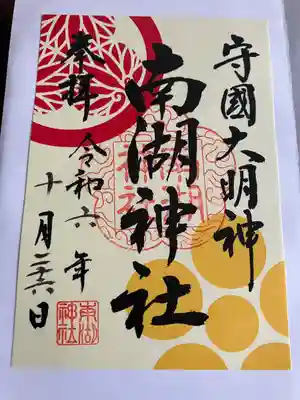 守國大明神
南湖神社
奉拝
令和六年
十月二十六日
南湖
神社
南湖
神社